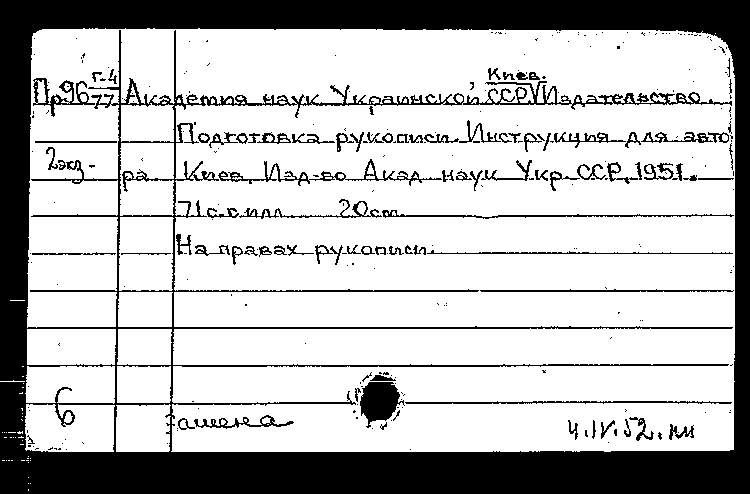 Пр96 Г-4/77 Академия наук Украинской ССР, Киев. Издательство.
Подготовка рукописи. Инструкция для авто
2 экз- ра. Киев, Изд-во Акад. наук Укр. ССР, 1951.
71 с. с илл. 20 см.
На правах рукописи.
6
замена
4.IV.52.